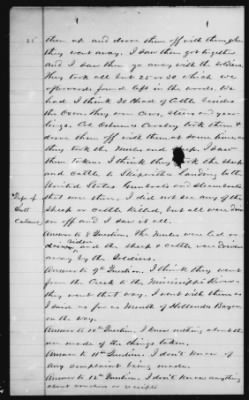 25 them up and drove them off with them when
they went away. I saw them got together
and I saw them go away with the Mules
They took all but 25 or 30 which we
afterwards found left in the woods. We
had I think 30 Head of Cattle besides
the Oxen, they were Cows, Steers and year-
lings. Col Osband's Cavalry took them &
drove them off with them at same time as
they took the Mules and Sheep. I saw
them taken. I think they took the sheep
and cattle to Skipwiths Landing to the
United States Gunboats and steamboats
that were there, I did not see any of the
sheep or cattle killed, but all were driven
off and I saw it all.
Answer to 8" Question. The Mules were led or
ridden
and the sheep & cattle were driven
away by the Soldiers.
Answer to 9" Question. I think they went
from the Creek to the Mississippi River,
they went that way. I went with them as
far as Mouth of Hollands Bayou
on the way.
Answer to 10" Question. I know nothing about the
use made of the things taken.
Answer to 11" Question. I don't know of
any complaint being made.
Answer to 12" Question. I don't know anything
about vouchers or receipts
Depo. of